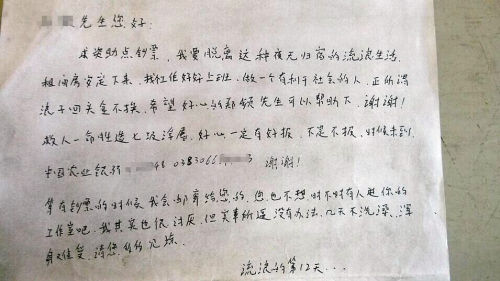 先生您好:
求资助点钞票,我要脱离这种夜无归宿的流浪生活,
租间房安定下来,找工作好好上班,做一个有利于社会的人,正所谓
浪子回头金不换,希望好心的郑领先生可以帮助下,谢谢!
救人一命胜造七级浮屠,好心一定有好报,不是不报,时候未到
中国农业银行 48 0383066 3 谢谢!
等有钞票的时候我会如数寄给您的,您也不想时不时有人进你的
工作室吧,我其实也很讨厌,但实事所逼没有办法,几天不洗澡,浑
身难受,请您
流浪的第12天...